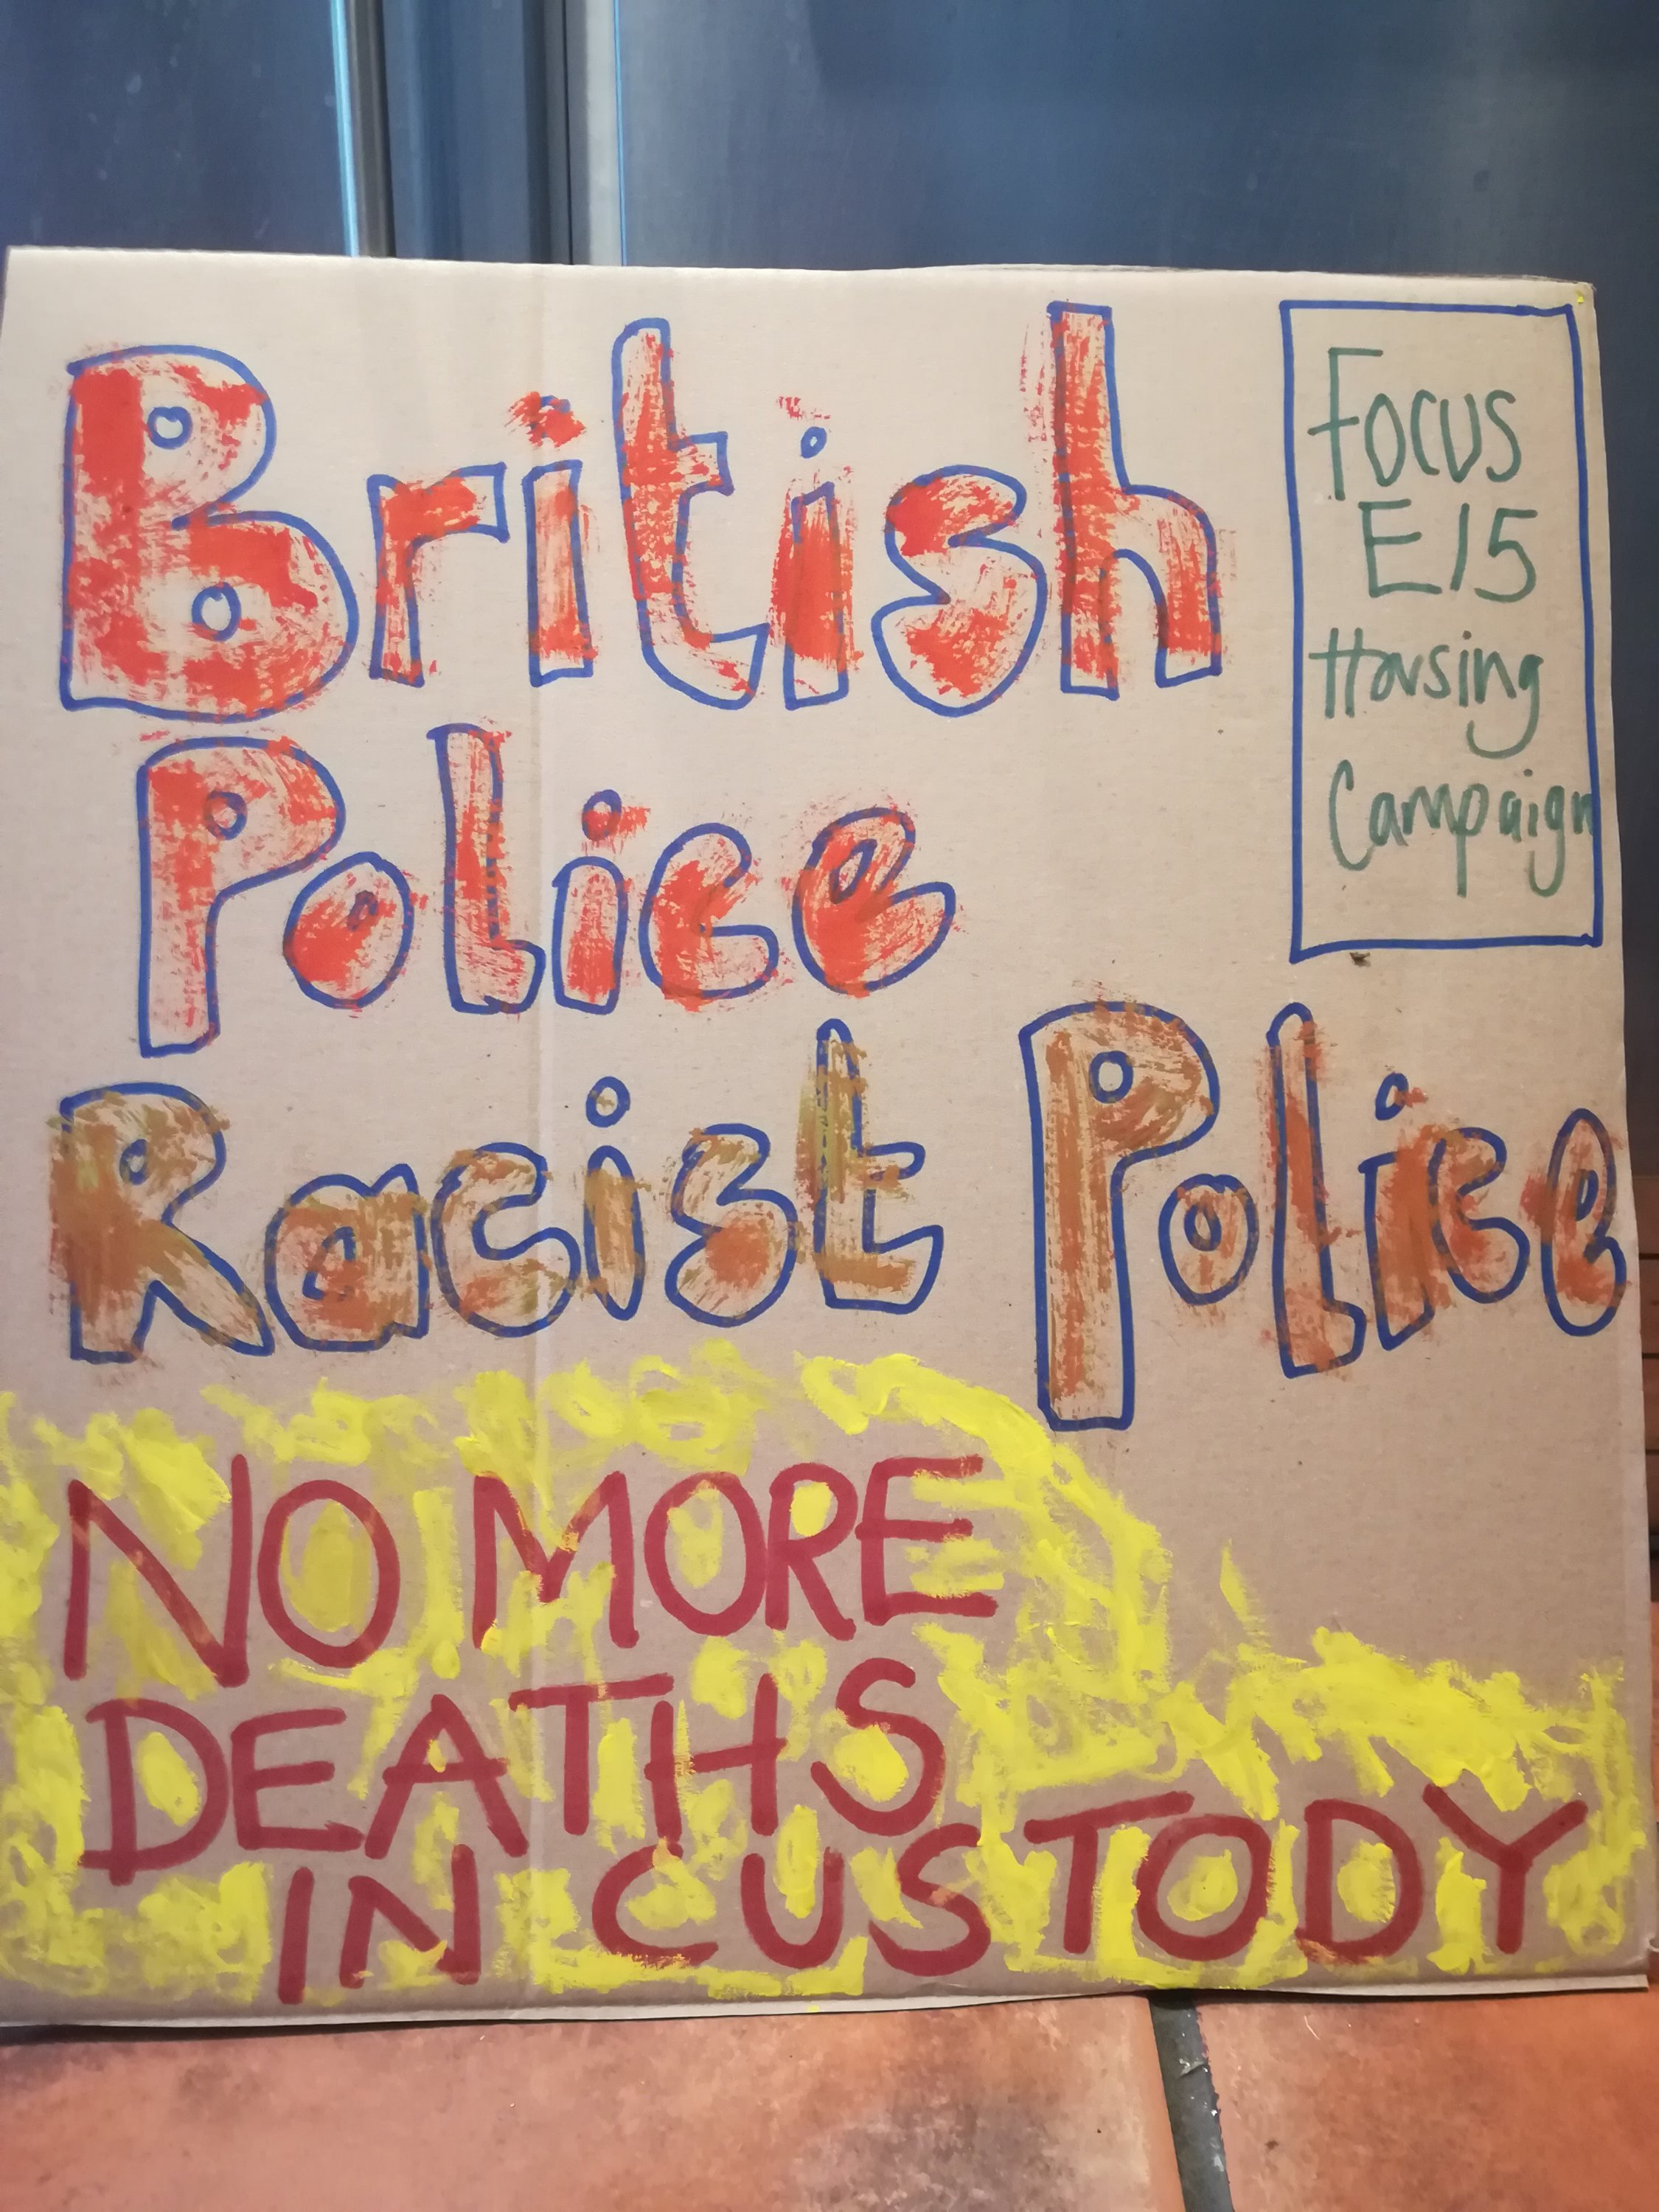 British
Police
Racist Police
NO MORE
DEATHS
IN CUSTODY
Focus
E15
Housing
Campaign